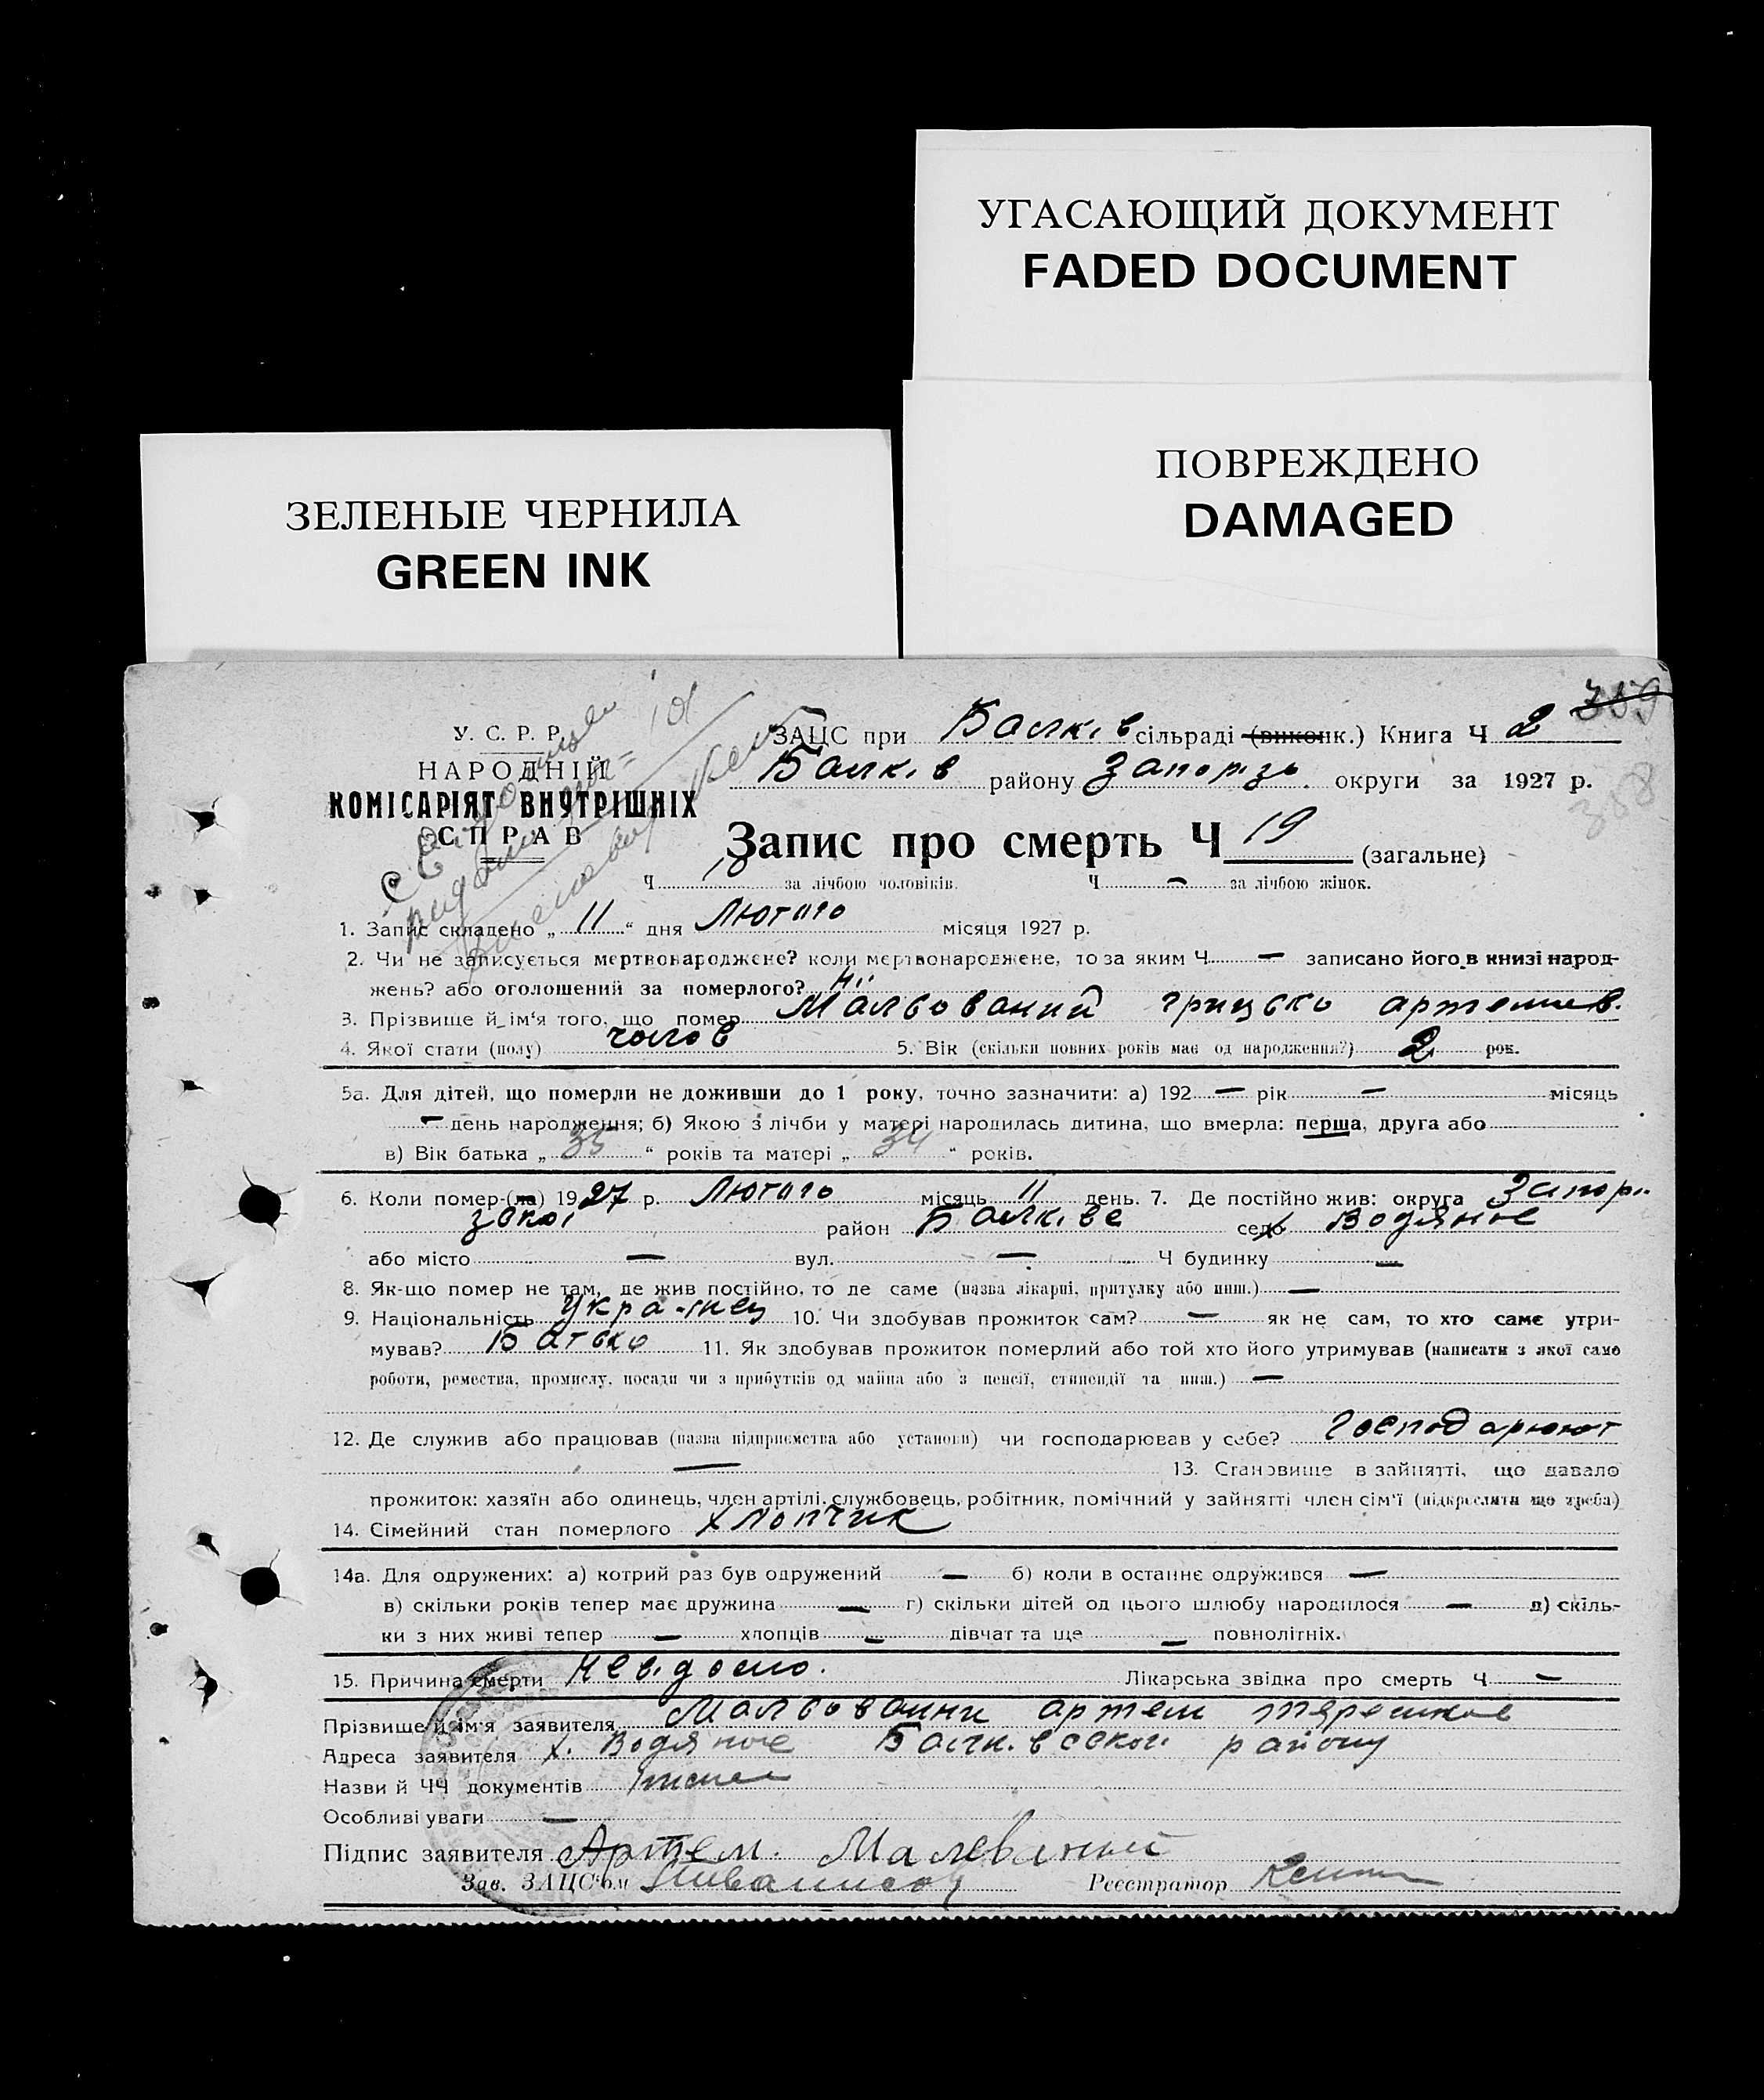 УГАСАЮЩИЙ ДОКУМЕНТ
FADED DOCUMENT
ПОВРЕЖДЕНО
DAMAGED
ЗЕЛЕНЫЕ ЧЕРНИЛА
GREEN INK
359
358
У. С. Р. Р.
НАРОДНІЙ
КОМІСАРІЯТ ВНУТРІШНІХ
СПРАВ
ЗАЦС при Балків сільраді (викон́к.) Книга Ч 2
Балків району Запорізь. округи за 1927 р.
Запис про смерть Ч 19 (загальне)
Ч 10 за лічбою чоловіків. Ч — за лічбою жінок.
1. Запис складено „ 11 “ дня Лютаго місяця 1927 р.
2. Чи не записується мертвонароджене? коли мертвонароджене, то за яким Ч — записано його в книзі народ-
жень? або оголошений за померлого? Ні
3. Прізвище й ім'я того, що помер Мальований Грицько Артемів.
4. Якої стати (полу) чолов 5. Вік (скільки повних років має од народження?) 2 рок.
5а. Для дітей, що померли не доживши до 1 року, точно зазначити: а) 192 — рік — місяць
— день народження; б) Якою з лічби у матері народилась дитина, що вмерла: перша, друга або
в) Вік батька „ 35 “ років та матері „ 34 “ років.
6. Коли помер-(ла) 1927 р. Лютаго місяць 11 день. 7. Де постійно жив: округа Запорі-
зької район Балківс село х Водяное
або місто — вул. — Ч будинку —
8. Як-що помер не там, де жив постійно, то де саме (назва лікарні, притулку або инш.) —
9. Національність Украінец 10. Чи здобував прожиток сам? — як не сам, то хто саме утри-
мував? Батько 11. Як здобував прожиток померлий або той хто його утримував (написати з якої саме
роботи, ремества, промислу, посади чи з прибутків од майна або з пенсії, стипендії та инш.) —
12. Де служив або працював (назва підприємства або установи) чи господарював у себе? Господарюют
— 13. Становище в зайнятті, що давало
прожиток: хазяїн або одинець, член артілі, службовець, робітник, помічний у зайнятті член сім'ї (підкреслити що треба)
14. Сімейний стан померлого Хлопчик
14а. Для одружених: а) котрий раз був одружений — б) коли в останнє одружився —
в) скільки років тепер має дружина — г) скільки дітей од цього шлюбу народилося — д) скіль-
ки з них живі тепер — хлопців — дівчат та ще — повнолітніх.
15. Причина смерти Невідомо. Лікарська звідка про смерть Ч —
Прізвище й ім'я заявителя Мальований Артем
Адреса заявителя х. Водяное Балківської району
Назви й ЧЧ документів
Особливі уваги —
Підпис заявителя Артем. Малеваний
Зав. ЗАЦС'ом
Реєстратор